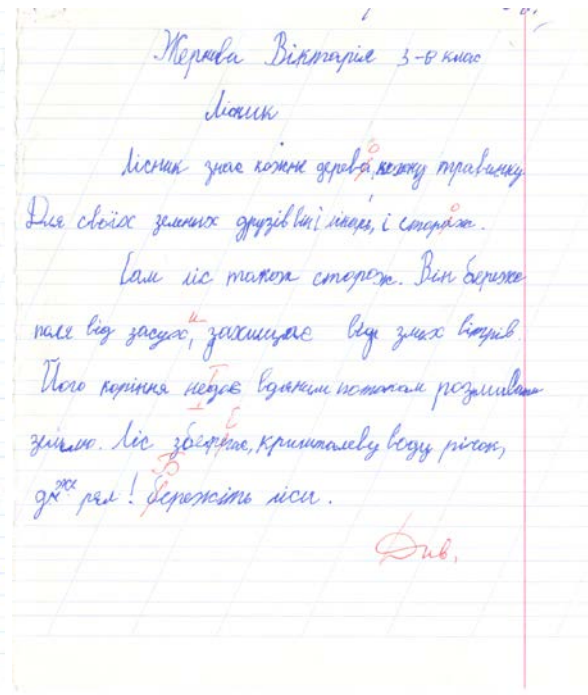 Вікторія 3-в клас
Лісник
Лісник знає кожне дерево, кожну травинку.
Для своїх зелених друзів він і лікар, і сторож.
Сам ліс також сторож. Він береже
поля від засух, захищає від злих вітрів.
Його коріння недає водяним потокам розмивати
землю. Ліс зберігає, кришталеву воду річок,
рел! Бережіть ліси.
Див.